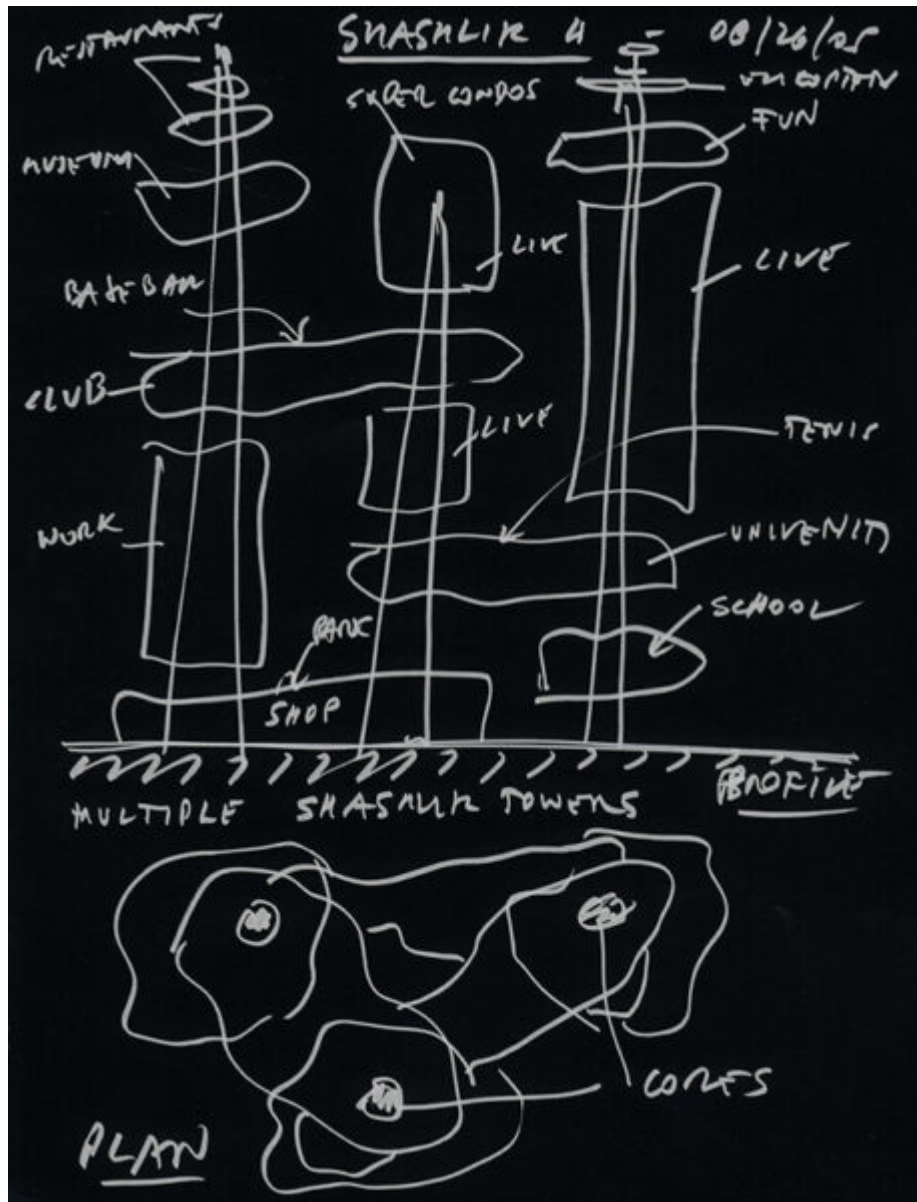 SHASHLIK 4
08/26/05
RESTAURANTS
SUPER CONDOS
FUN
MUSEUM
LIVE
LIVE
BASEBALL
CLUB
LIVE
TENIS
WORK
UNIVERSITY
SCHOOL
SHOP
MULTIPLE SHASHLIK TOWERS
PROFILE
CORES
PLAN